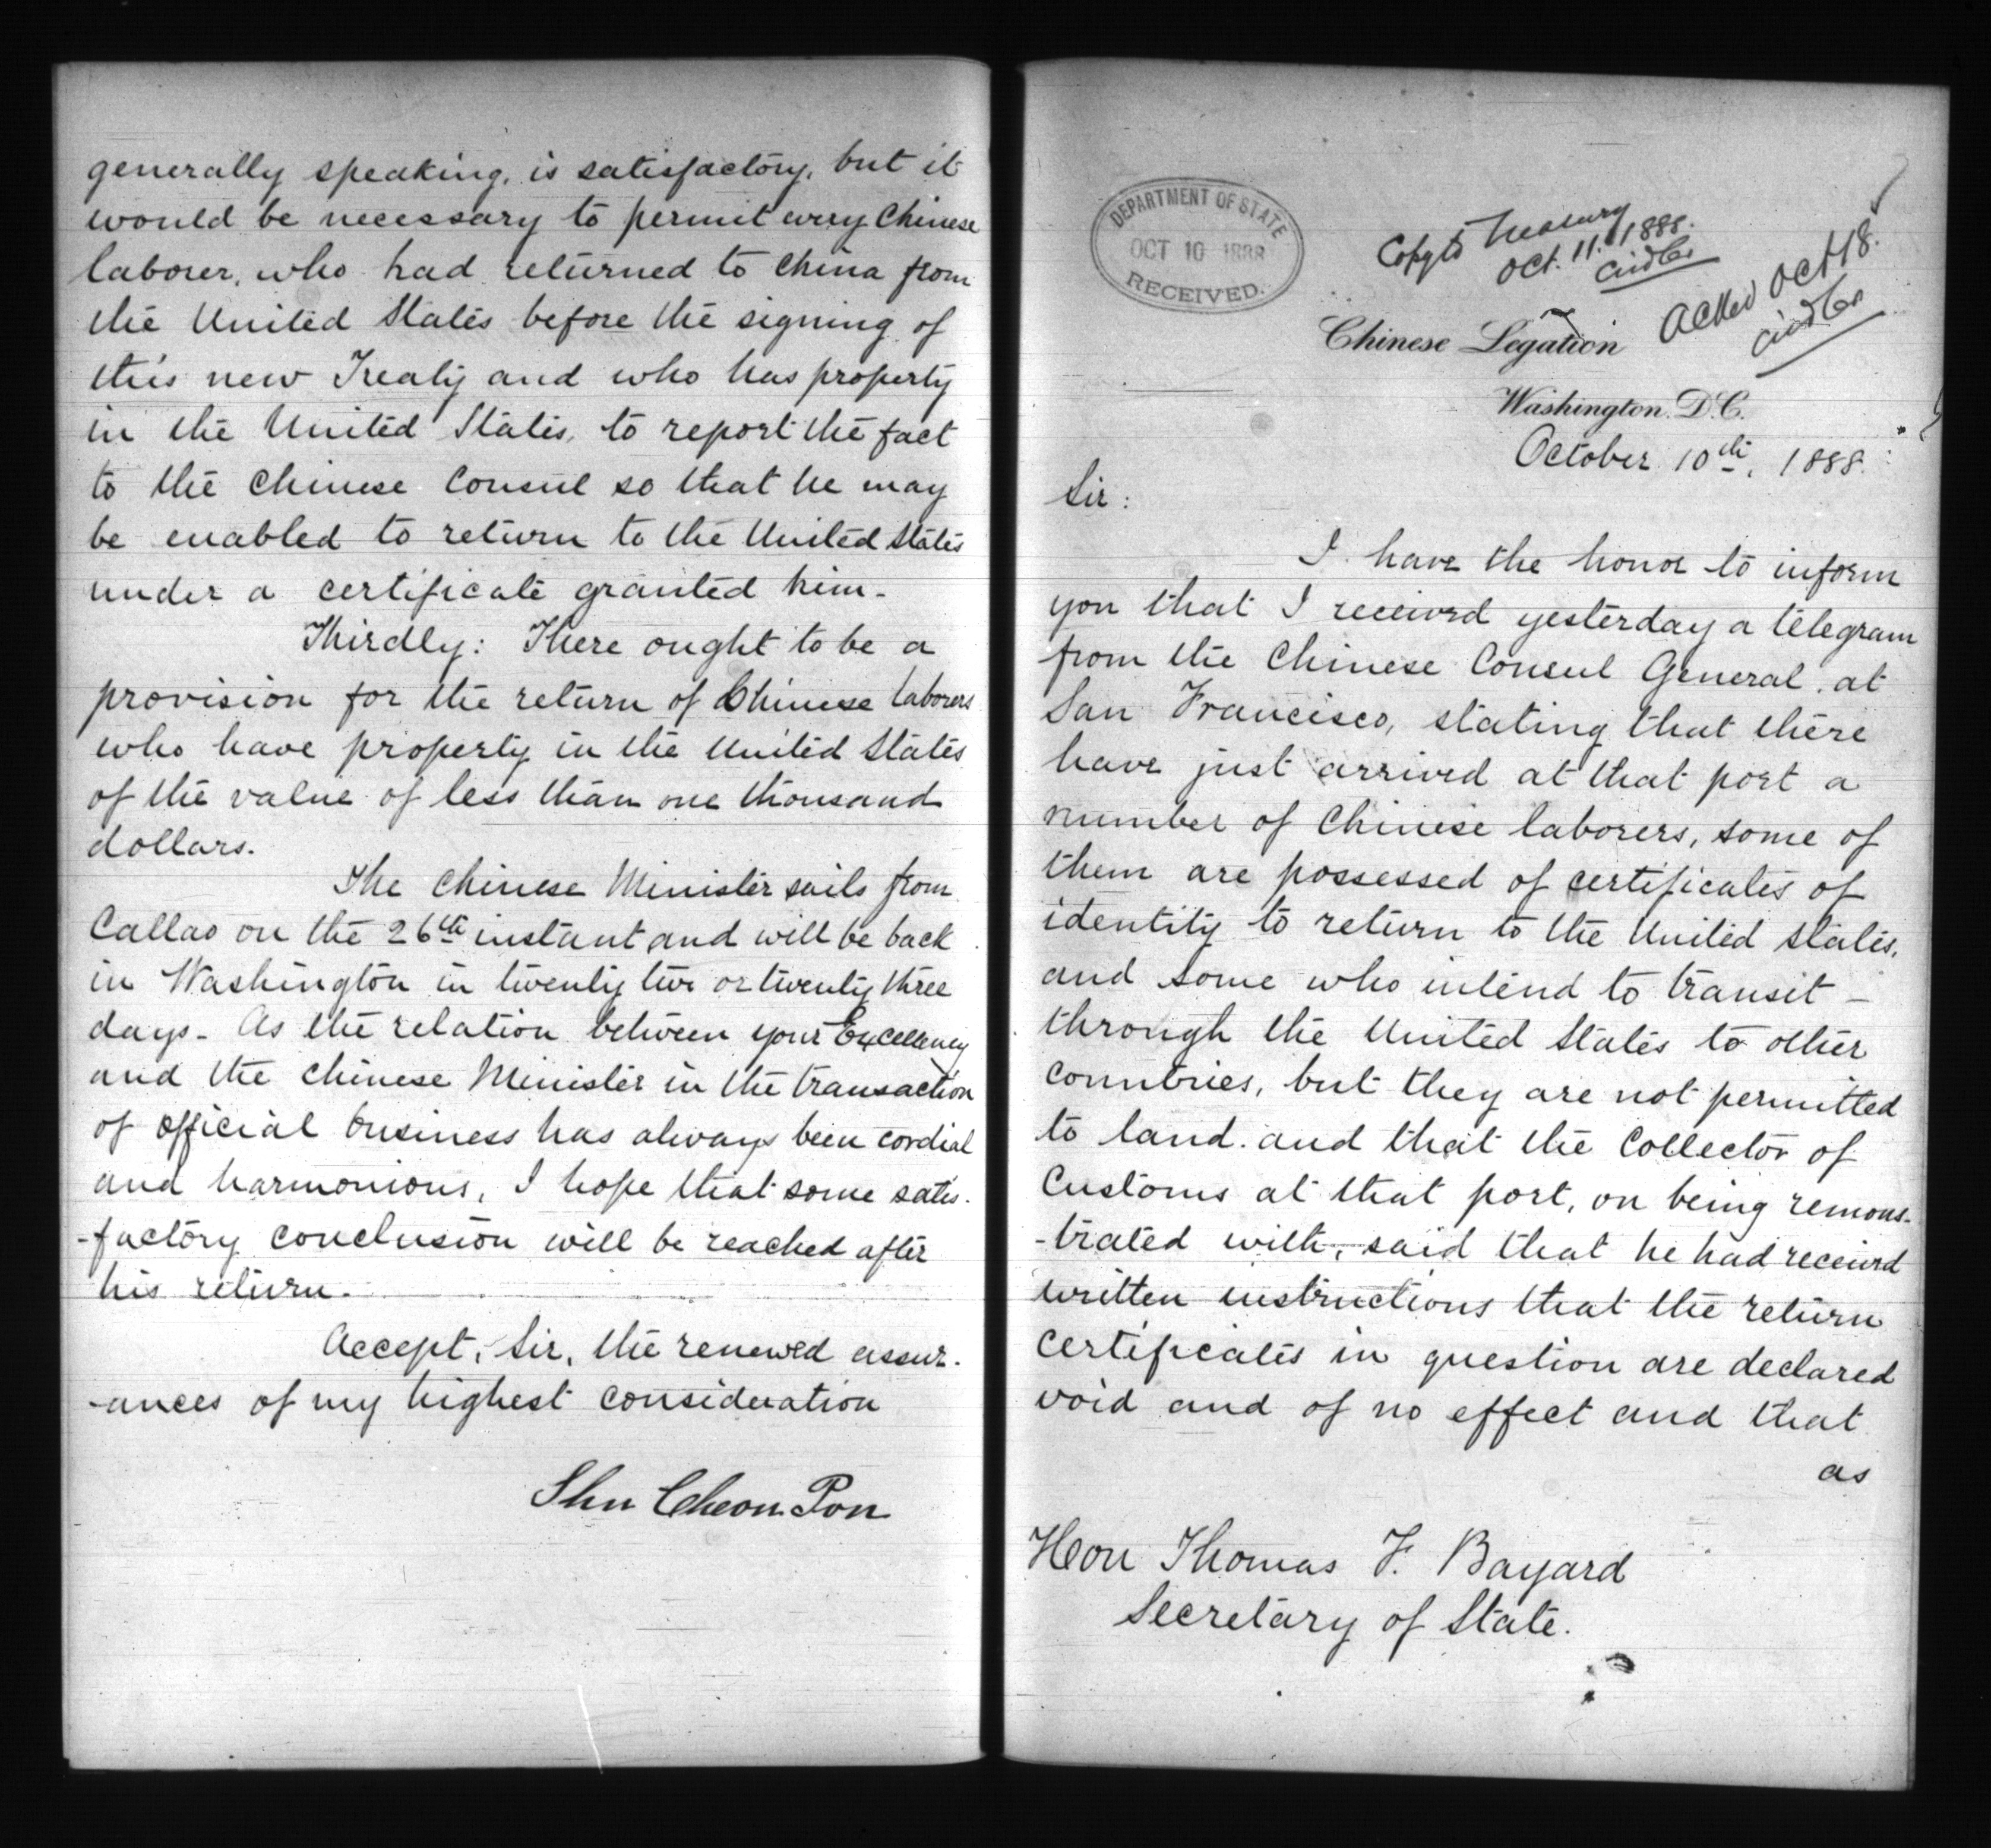 generally speaking, is satisfactory, but it
would be necessary to permit every Chinese
laborer, who had returned to China from
the United States before the signing of
this new Treaty and who has property
in the United States, to report the fact
to the Chinese Consul so that he may
be enabled to return to the United States
under a certificate granted him.
Thirdly: There ought to be a
provision for the return of Chinese laborers
who have property in the United States
of the value of less than one thousand
dollars.
The Chinese Minister sails from
Callao on the 26th instant and will be back
in Washington in twenty two or twenty three
days. As the relation between your Excellency
and the Chinese Minister in the transaction
of official business has always been cordial
and harmonious, I hope that some satis-
-factory conclusion will be reached after
his return.
Accept, Sir, the renewed assur-
-ances of my highest consideration
Shu Cheon Pon
DEPARTMENT OF STATE
OCT 10 1888
RECEIVED.
Copy to Treasury
Oct. 11. 1888.
Acked Oct 18.
Chinese Legation
Washington. D.C.
October 10th, 1888.
Sir:
I have the honor to inform
you that I received yesterday a telegram
from the Chinese Consul General, at
San Francisco, stating that there
have just arrived at that port a
number of Chinese laborers, some of
them are possessed of certificates of
identity to return to the United States,
and some who intend to transit
through the United States to other
countries, but they are not permitted
to land. and that the Collector of
Customs at that port, on being remons-
-trated with, said that he had received
written instructions that the return
certificates in question are declared
void and of no effect and that
as
Hon Thomas F. Bayard
Secretary of State.